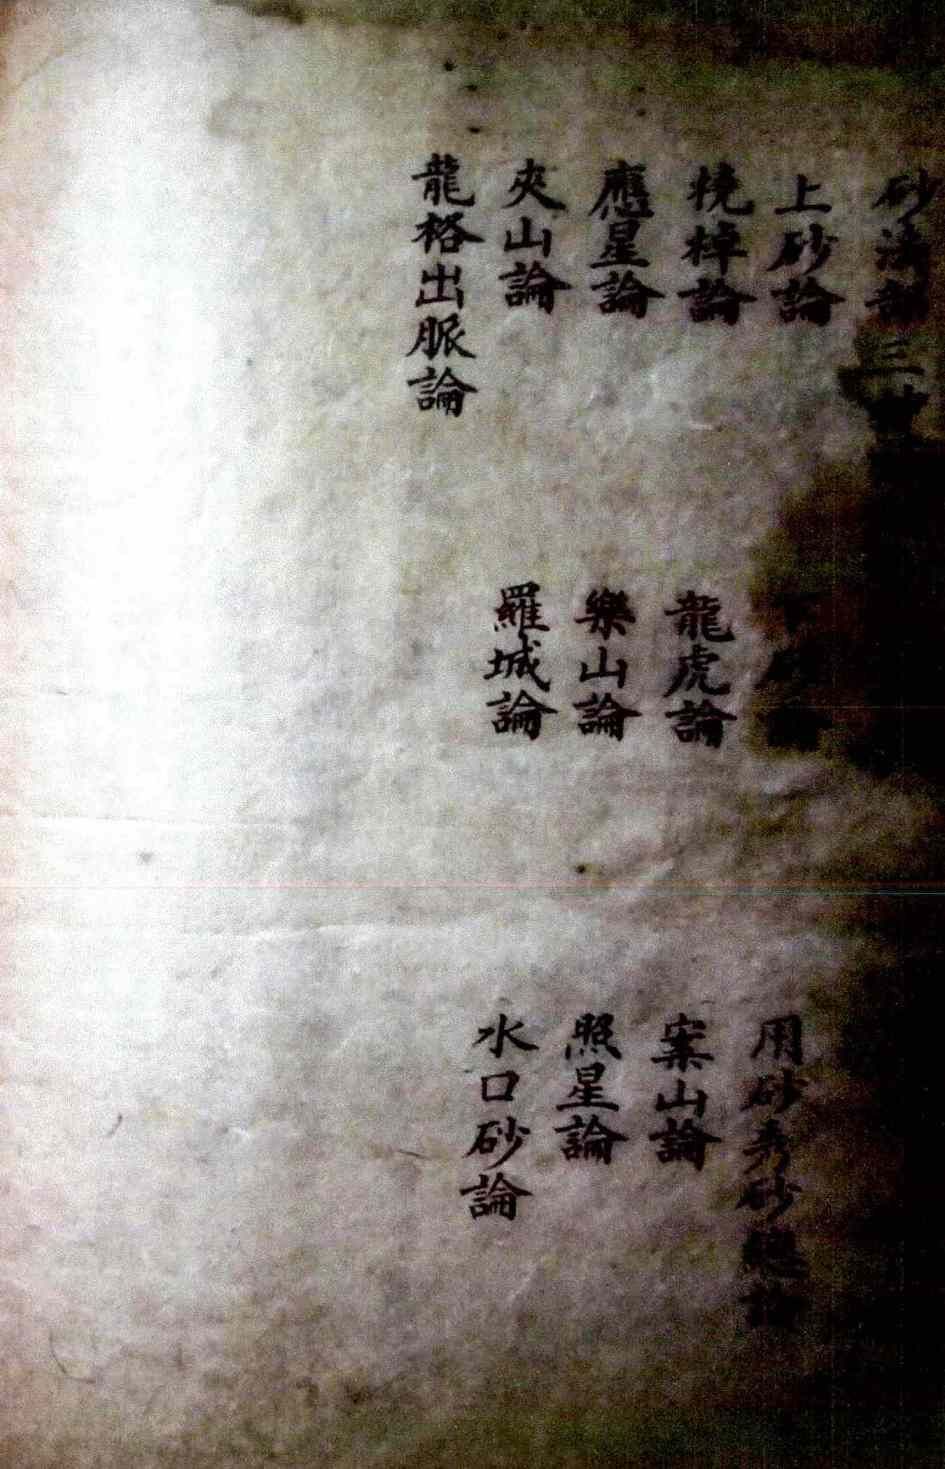 砂法部三
上砂論 下砂論 用砂秀砂總論
橈棹論 龍虎論 案山論
應星論 樂山論 照星論
夾山論 羅城論 水口砂論
龍格出脈論